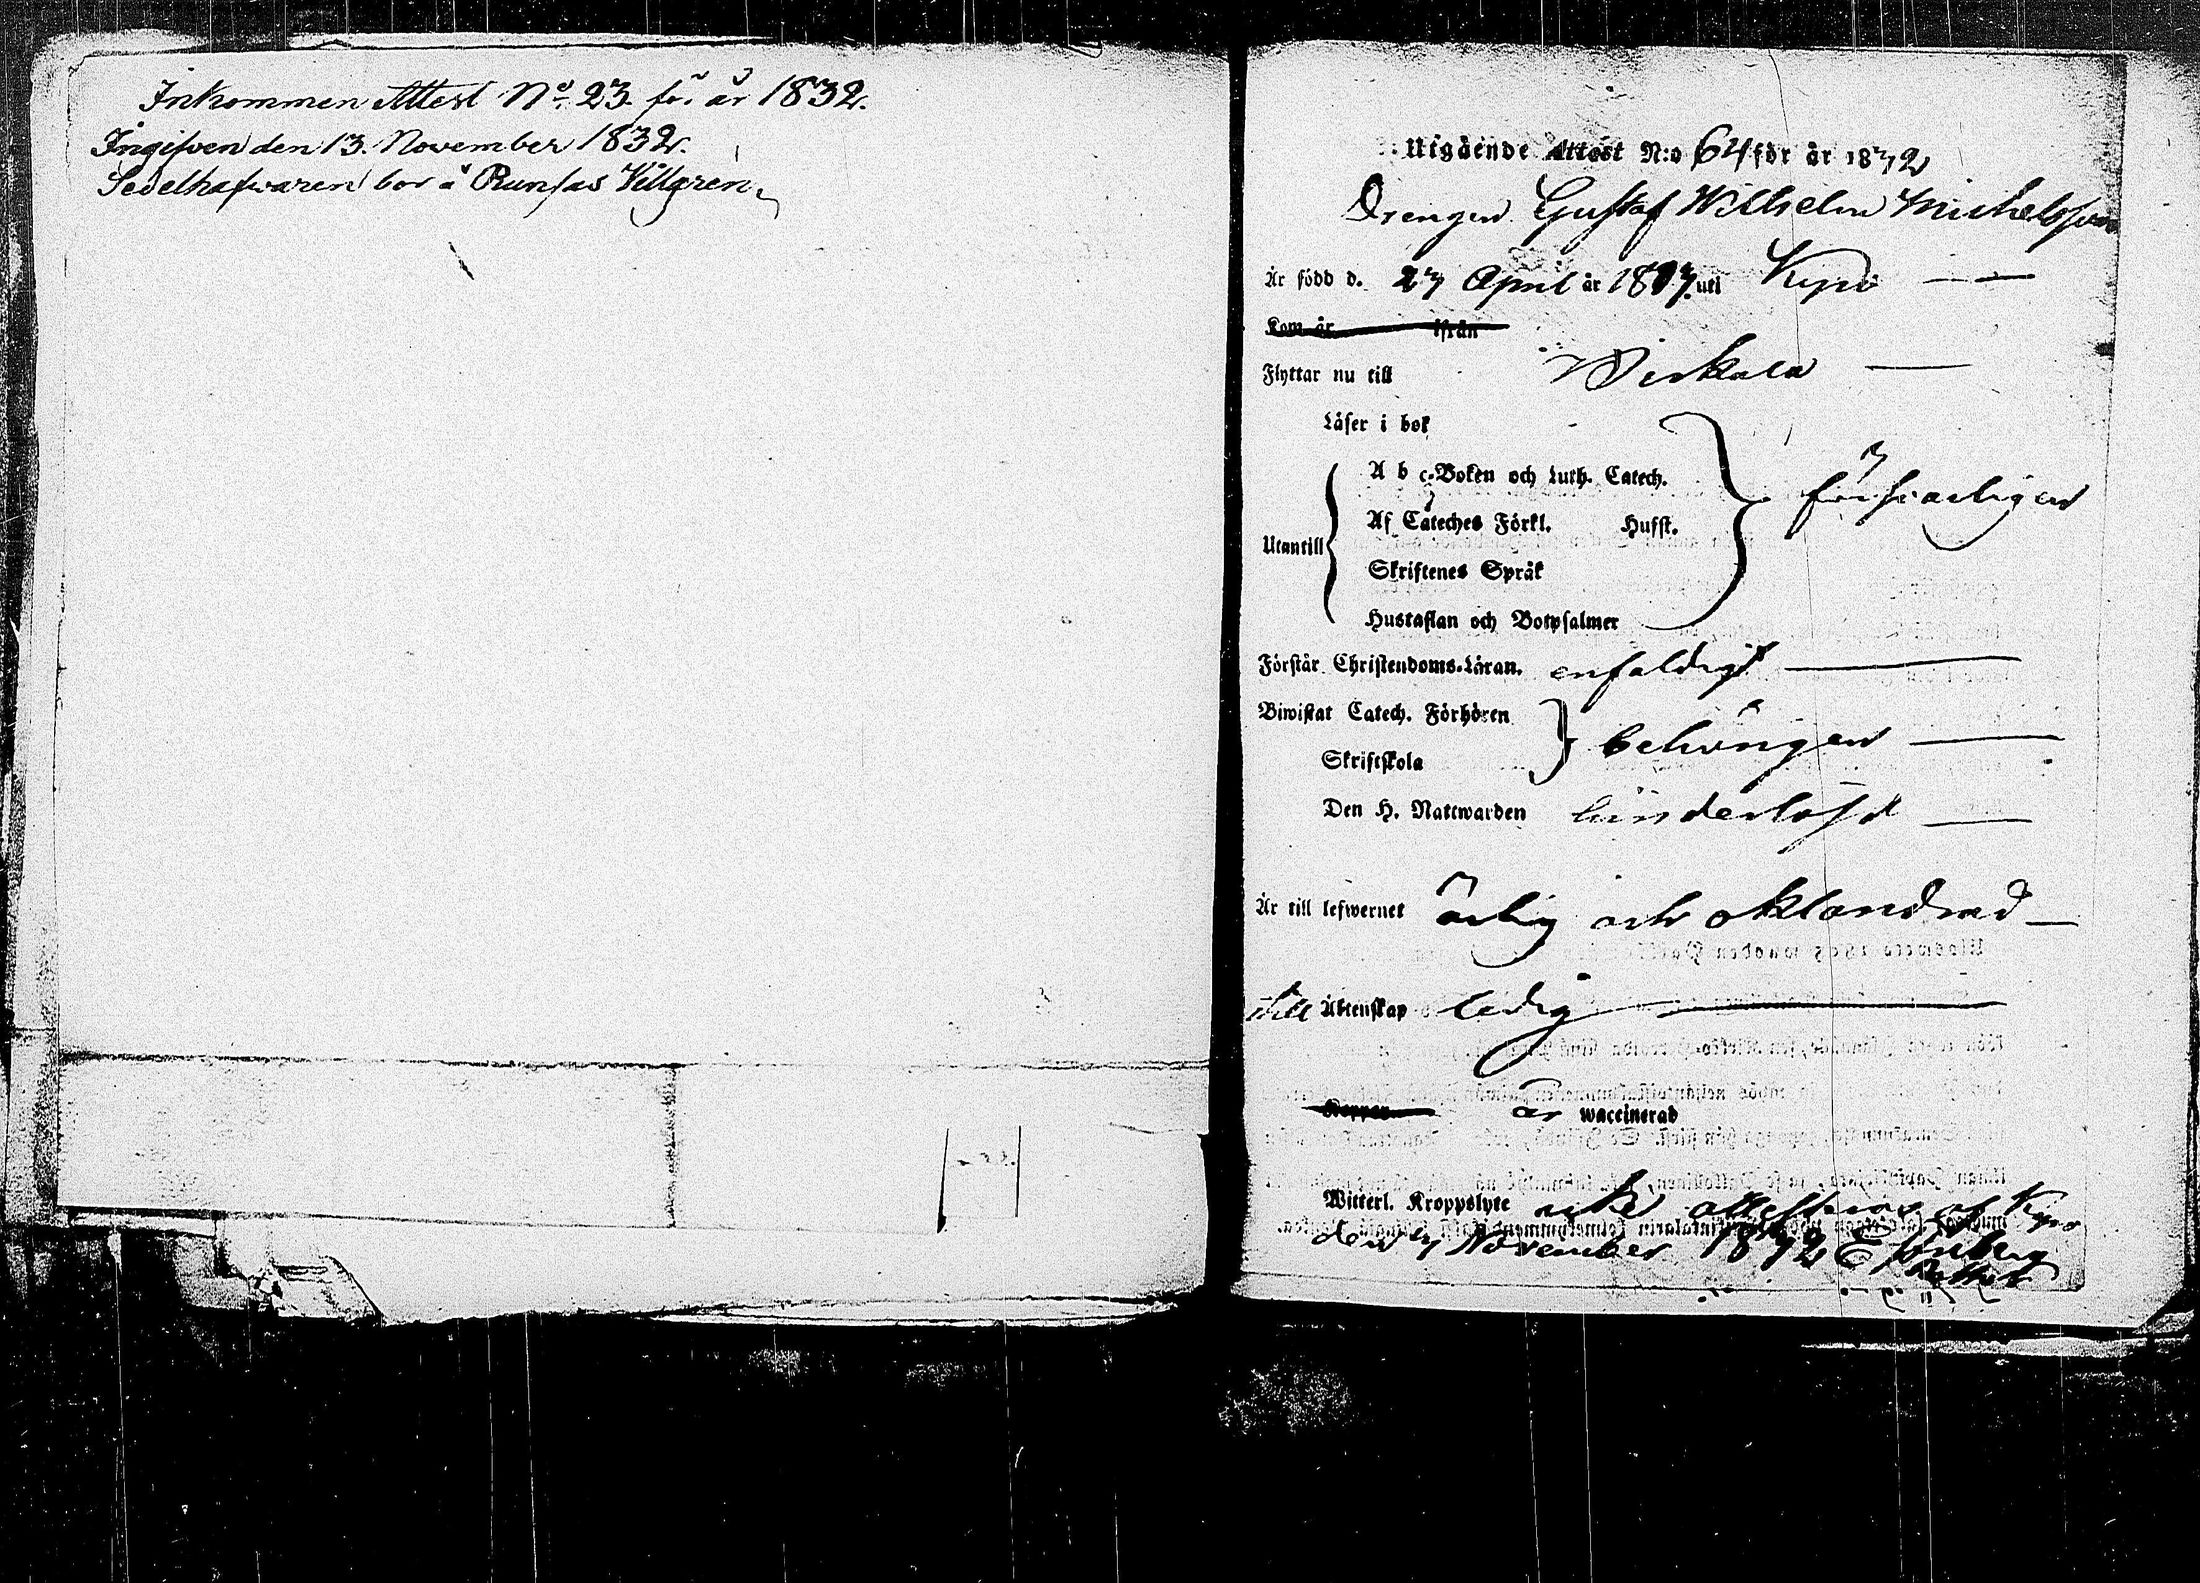 Inkommen Attest No. 23. för år 1832.
Ingifven den 13. November 1832.
Sedelhafwaren bor å Runsas Villgren.
Utgående Attest N:o 64 för år 1832
Drengen Gustaf Wilhelm Michelsson
Är född d. 27 April år 1817. uti Kyro
Kom år ifrån
Flyttar nu till Wirkala
Läser i bok
A b c-Boken och Luth. Catech. försvarligen
Af Cateches Förkl. Husst.
Utantill
Skriftenes Språk
Hustaflan och Botpsalmer
Förstår Christendoms-Läran. enfaldigt
Biwistat Catech. Förhören
behörigen
Skriftskola
Den H. Nattwarden hinderlöst
Är till lefwernet ärlig och oklandrad
till Äktenskap ledig
Koppor är waccinerad
Witterl. Kroppslyte icke attesteras af Kyro
den November 1832 E